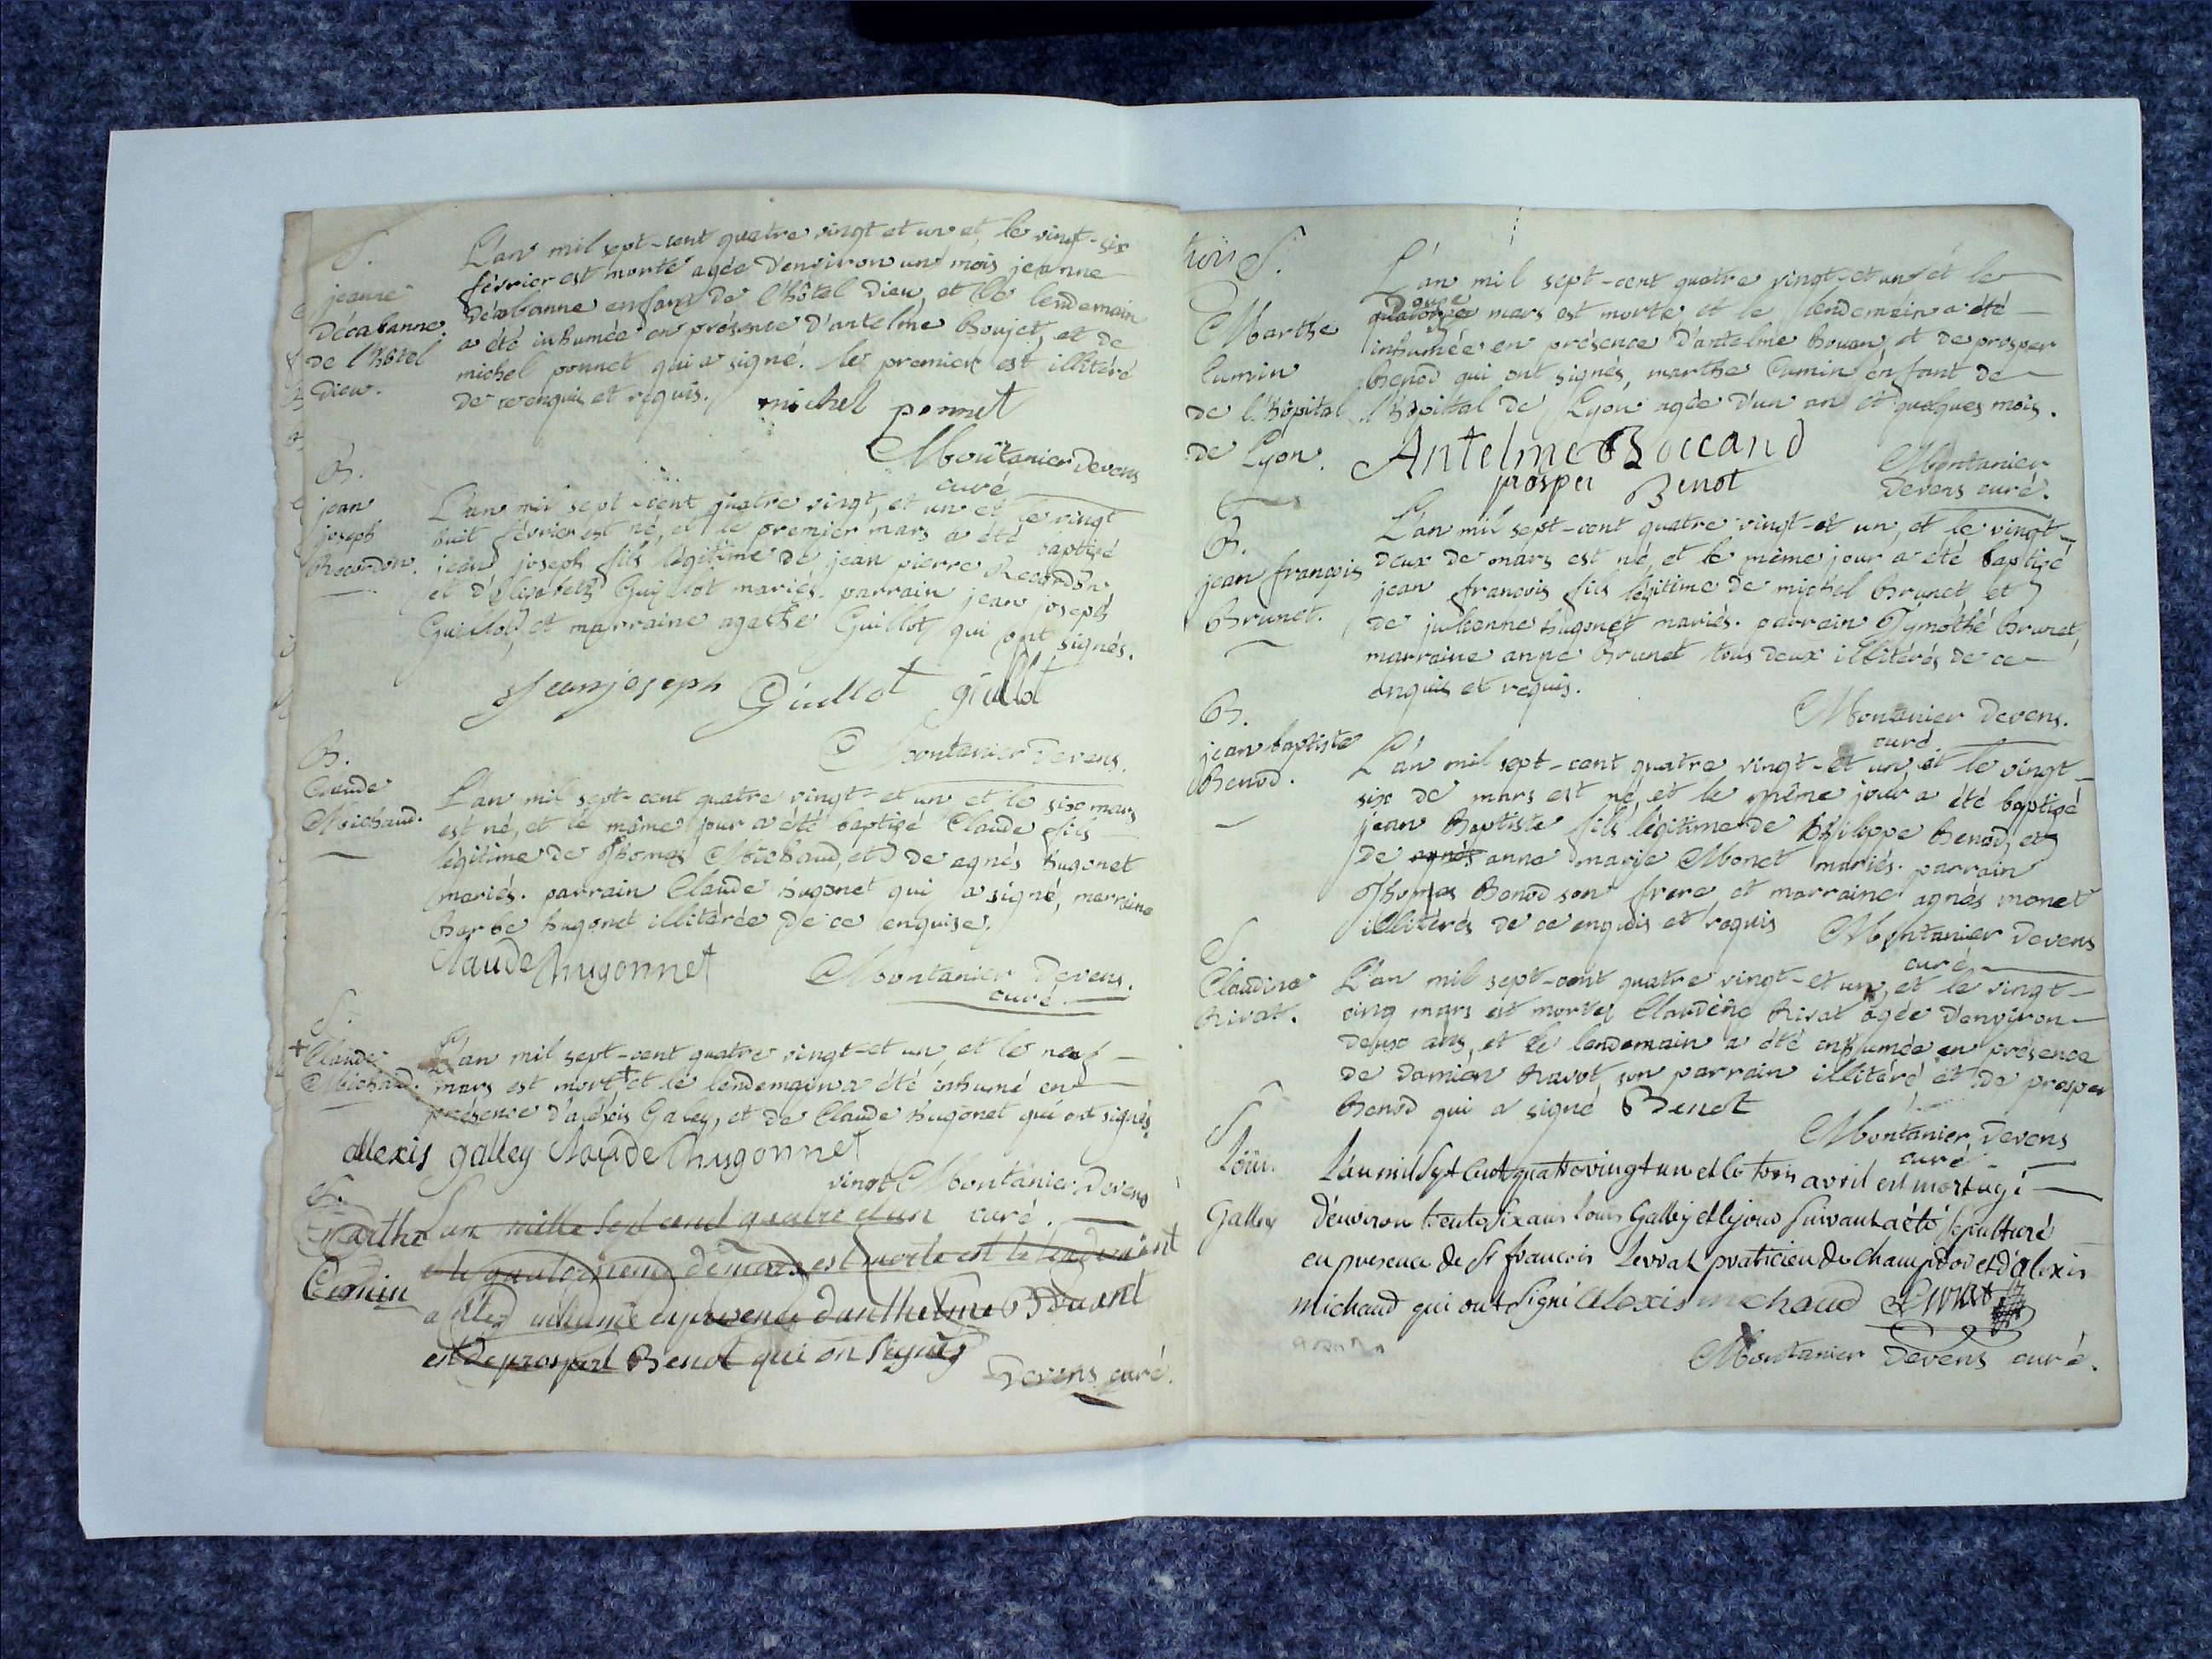 S.
jeanne
Décabanne.
de l'hôtel
Dieu.
L'an mil sept-cent quatre vingt et un et le vingt-six
février est morte agée d'environ un mois jeanne
Décabanne enfant de l'hôtel Dieu, et le lendemain
a été inhumée en présence d'antelme Boujet, et de
michel ponnet qui a signé. le premier est illitéré
de ce enquis et requis.
michel ponnet
Montanier Devens
curé
B.
jean
joseph
Recordon.
L'an mil sept-cent quatre vingt, et un et le vingt
huit février est né, et le premier mars a été baptizé
jean joseph fils légitime de jean pierre Recordon
et d'Elisabeth Guillot mariés. parrain jean joseph
Guillot, et marraine agathe Guillot, qui ont signés.
Jean joseph Guillot gillot
Montanier Devens.
B.
Claude
Michaud.
L'an mil sept-cent quatre vingt-et un et le six mars
est né, et le même jour a été baptizé Claude fils
légitime de Thomas Michaud, et de agnés hugonet
mariés. parrain Claude hugonet qui a signé, marraine
Barbe hugonet illitérée de ce enquise.
Claude hugonnet
Montanier Devens.
curé
S.
+
Claude
Michaud.
L'an mil sept-cent quatre vingt-et un, et le neuf
mars est mort + et le lendemain a été inhumé en
présence d'aléxis Galey, et de Claude hugonet qui ont signés.
alexis galley Claude hugonnet
Montanier Devens
curé.
S.
Marthe
Cumin
vingt
Lan mille sept cend quatre et un
et le quatorsieme de mars est morte est le lendemaint
a été inhumé en presence danthelme Boucand
est de prospert Benot qui on signés
Devens curé.
trois
S.
Marthe
Cumin
de l'hôpital
de Lyon.
L'an mil sept-cent quatre vingt-et un et le
Douze
quatorze mars est morte et le lendemain a été
inhumée en présence d'antelme Bouan, et de prosper
Benod qui ont signés, marthe Cumin enfant de
l'hôpital de Lyon agée d'un an et quelques mois.
Antelme Boccand
prosper Benot
Montanier
Devens curé.
B.
jean françois
Brunet.
L'an mil sept-cent quatre vingt-et un, et le vingt-
deux de mars est né, et le même jour a été baptizé
jean françois fils légitime de michel Brunet, et
de julienne hugonet mariés. parrain Tymothé Brunet,
marraine anne Brunet tous deux illitérés de ce
enquis et requis.
Montanier Devens.
curé
B.
jean baptiste
Benod.
L'an mil sept-cent quatre vingt-et un, et le vingt-
six de mars est né, et le même jour a été baptizé
jean Baptiste fils légitime de philippe Benod, et
de agnés anne marie Monet mariés. parrain
Thomas Benod son frere et marraine agnés monet
illitérés de ce enquis et requis
Montanier Devens
curé
S.
Claudine
Rivat.
L'an mil sept-cent quatre vingt-et un, et le vingt-
cinq mars est morte Claudine Rivat agée d'environ
deux ans, et le lendemain a été inhumée en présence
de Damien Ravot, son parrain illitéré et de prosper
Benod qui a signé Benot
Montanier Devens
curé
S.
Loüis
Galley
L'an mil sept cent quatre vingt un et le trois avril est mort agé
d'environ trente six ans Louis Galley et le jour suivant a été sepulturé
en presence de sr françois Levrat praticien de champdor et d'alexis
michaud qui ont signé alexis michaud Levrat
Montanier Devens curé.